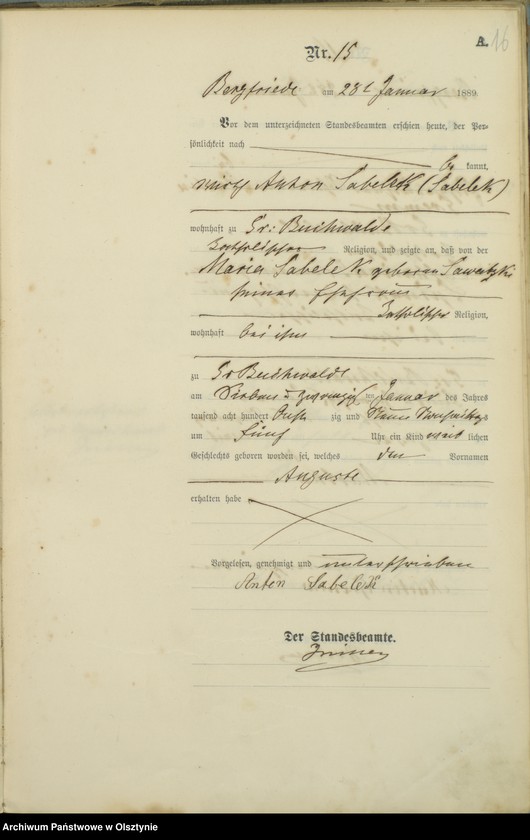 A. 16
Nr. 15
Bergfriede am 28t Januar 1889.
Vor dem unterzeichneten Standesbeamten erschien heute, der Per-
sönlichkeit nach
be kannt,
Anton Sabelek (Sabelek)
wohnhaft zu Gr: Buchwalde
katholischer Religion, und zeigte an, daß von der
Maria Sabelek geborene Sawatzki
seiner Ehefrau
katholischer Religion,
wohnhaft bei ihm
zu Gr Buchwalde
am Sieben u zwanzigsten Januar des Jahres
tausend acht hundert acht zig und Neun Nachmittags
um fünf Uhr ein Kind weib lichen
Geschlechts geboren worden sei, welches den Vornamen
Auguste
erhalten habe
Vorgelesen, genehmigt und unterschrieben
Anton Sabelek
Der Standesbeamte.
Archiwum Państwowe w Olsztynie